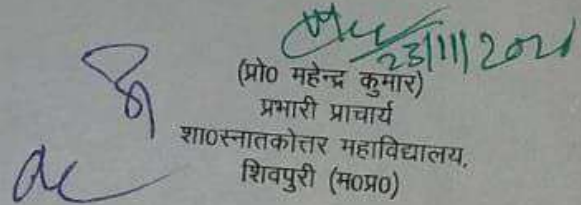 23/11/2021
(प्रो0 महेन्द्र कुमार)
प्रभारी प्राचार्य
शा0स्नातकोत्तर महाविद्यालय,
शिवपुरी (म0प्र0)